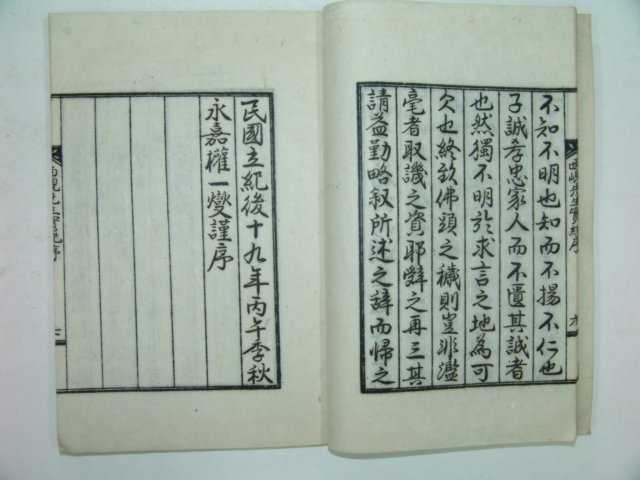 不知不明也知而不揚不仁也
子誠孝忠家人而不匱其誠者
也然獨不明於求言之地為可
欠也終欽佛頭之穢則豈非濫
毫者取譏之資耶辭之再三其
請益勤略叙所述之辭而帰之
民國立紀後十九年丙午季秋
永嘉權一燮謹序